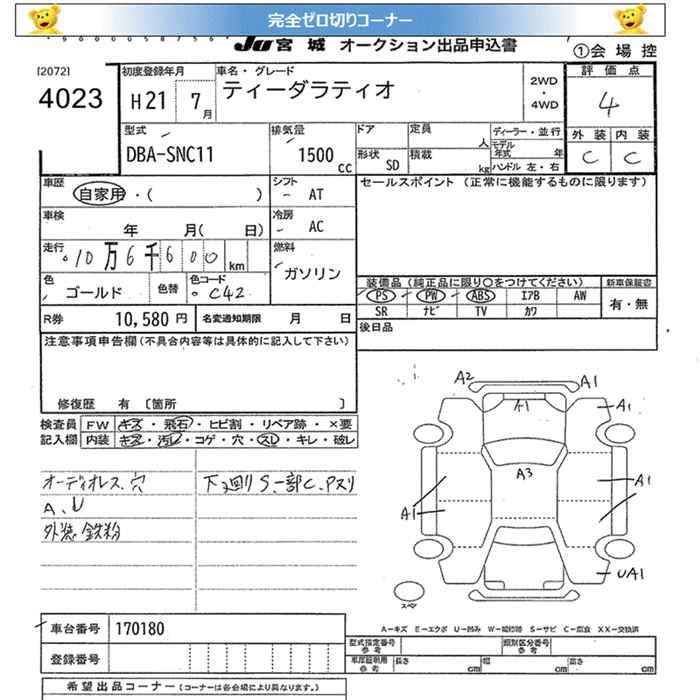 完全ゼロ切りコーナー
JU 宮城 オークション出品申込書
①会場控
[2072]
4023
初度登録年月
H21 7月
車名・グレード
ティーダラティオ
2WD
・
4WD
評価点
4
外装 内装
C C
型式
DBA-SNC11
排気量
1500 cc
ドア
定員 人
ディーラー・並行
モデル年式 年
形状 SD
積載 kg
ハンドル 左・右
車歴
自家用・( )
シフト
AT
セールスポイント (正常に機能するものに限ります)
車検
年 月( 日)
冷房
AC
走行
10万6千600 km
燃料
ガソリン
色
ゴールド
色替
色コード
C42
装備品 (純正品に限り○をつけてください)
新車保証書
PS PW ABS エアB AW
有・無
SR ナビ TV カワ
R券 10,580 円
名変通知期限 月 日
後日品
注意事項申告欄 (不具合内容等は具体的に記入して下さい)
修復歴 有 〔箇所 〕
検査員記入欄
FW キズ・飛石・ヒビ割・リペア跡・×要
内装 キズ・汚レ・コゲ・穴・スレ・キレ・破レ
オーディオレス、穴
下廻りS、一部C、Pヌリ
A、U
外装 鉄粉
A2 A1
A1
A1
A3
A1 A1
UA1
スペア
A-キズ E-エクボ U-凹み W-補修跡 S-サビ C-腐食 XX-交換済
車台番号 170180
登録番号
型式指定番号 参考
類別区分番号 参考
車庫証明用 参考
長さ cm 幅 cm 高さ cm
希望出品コーナー (コーナーは各会場により異なります。)